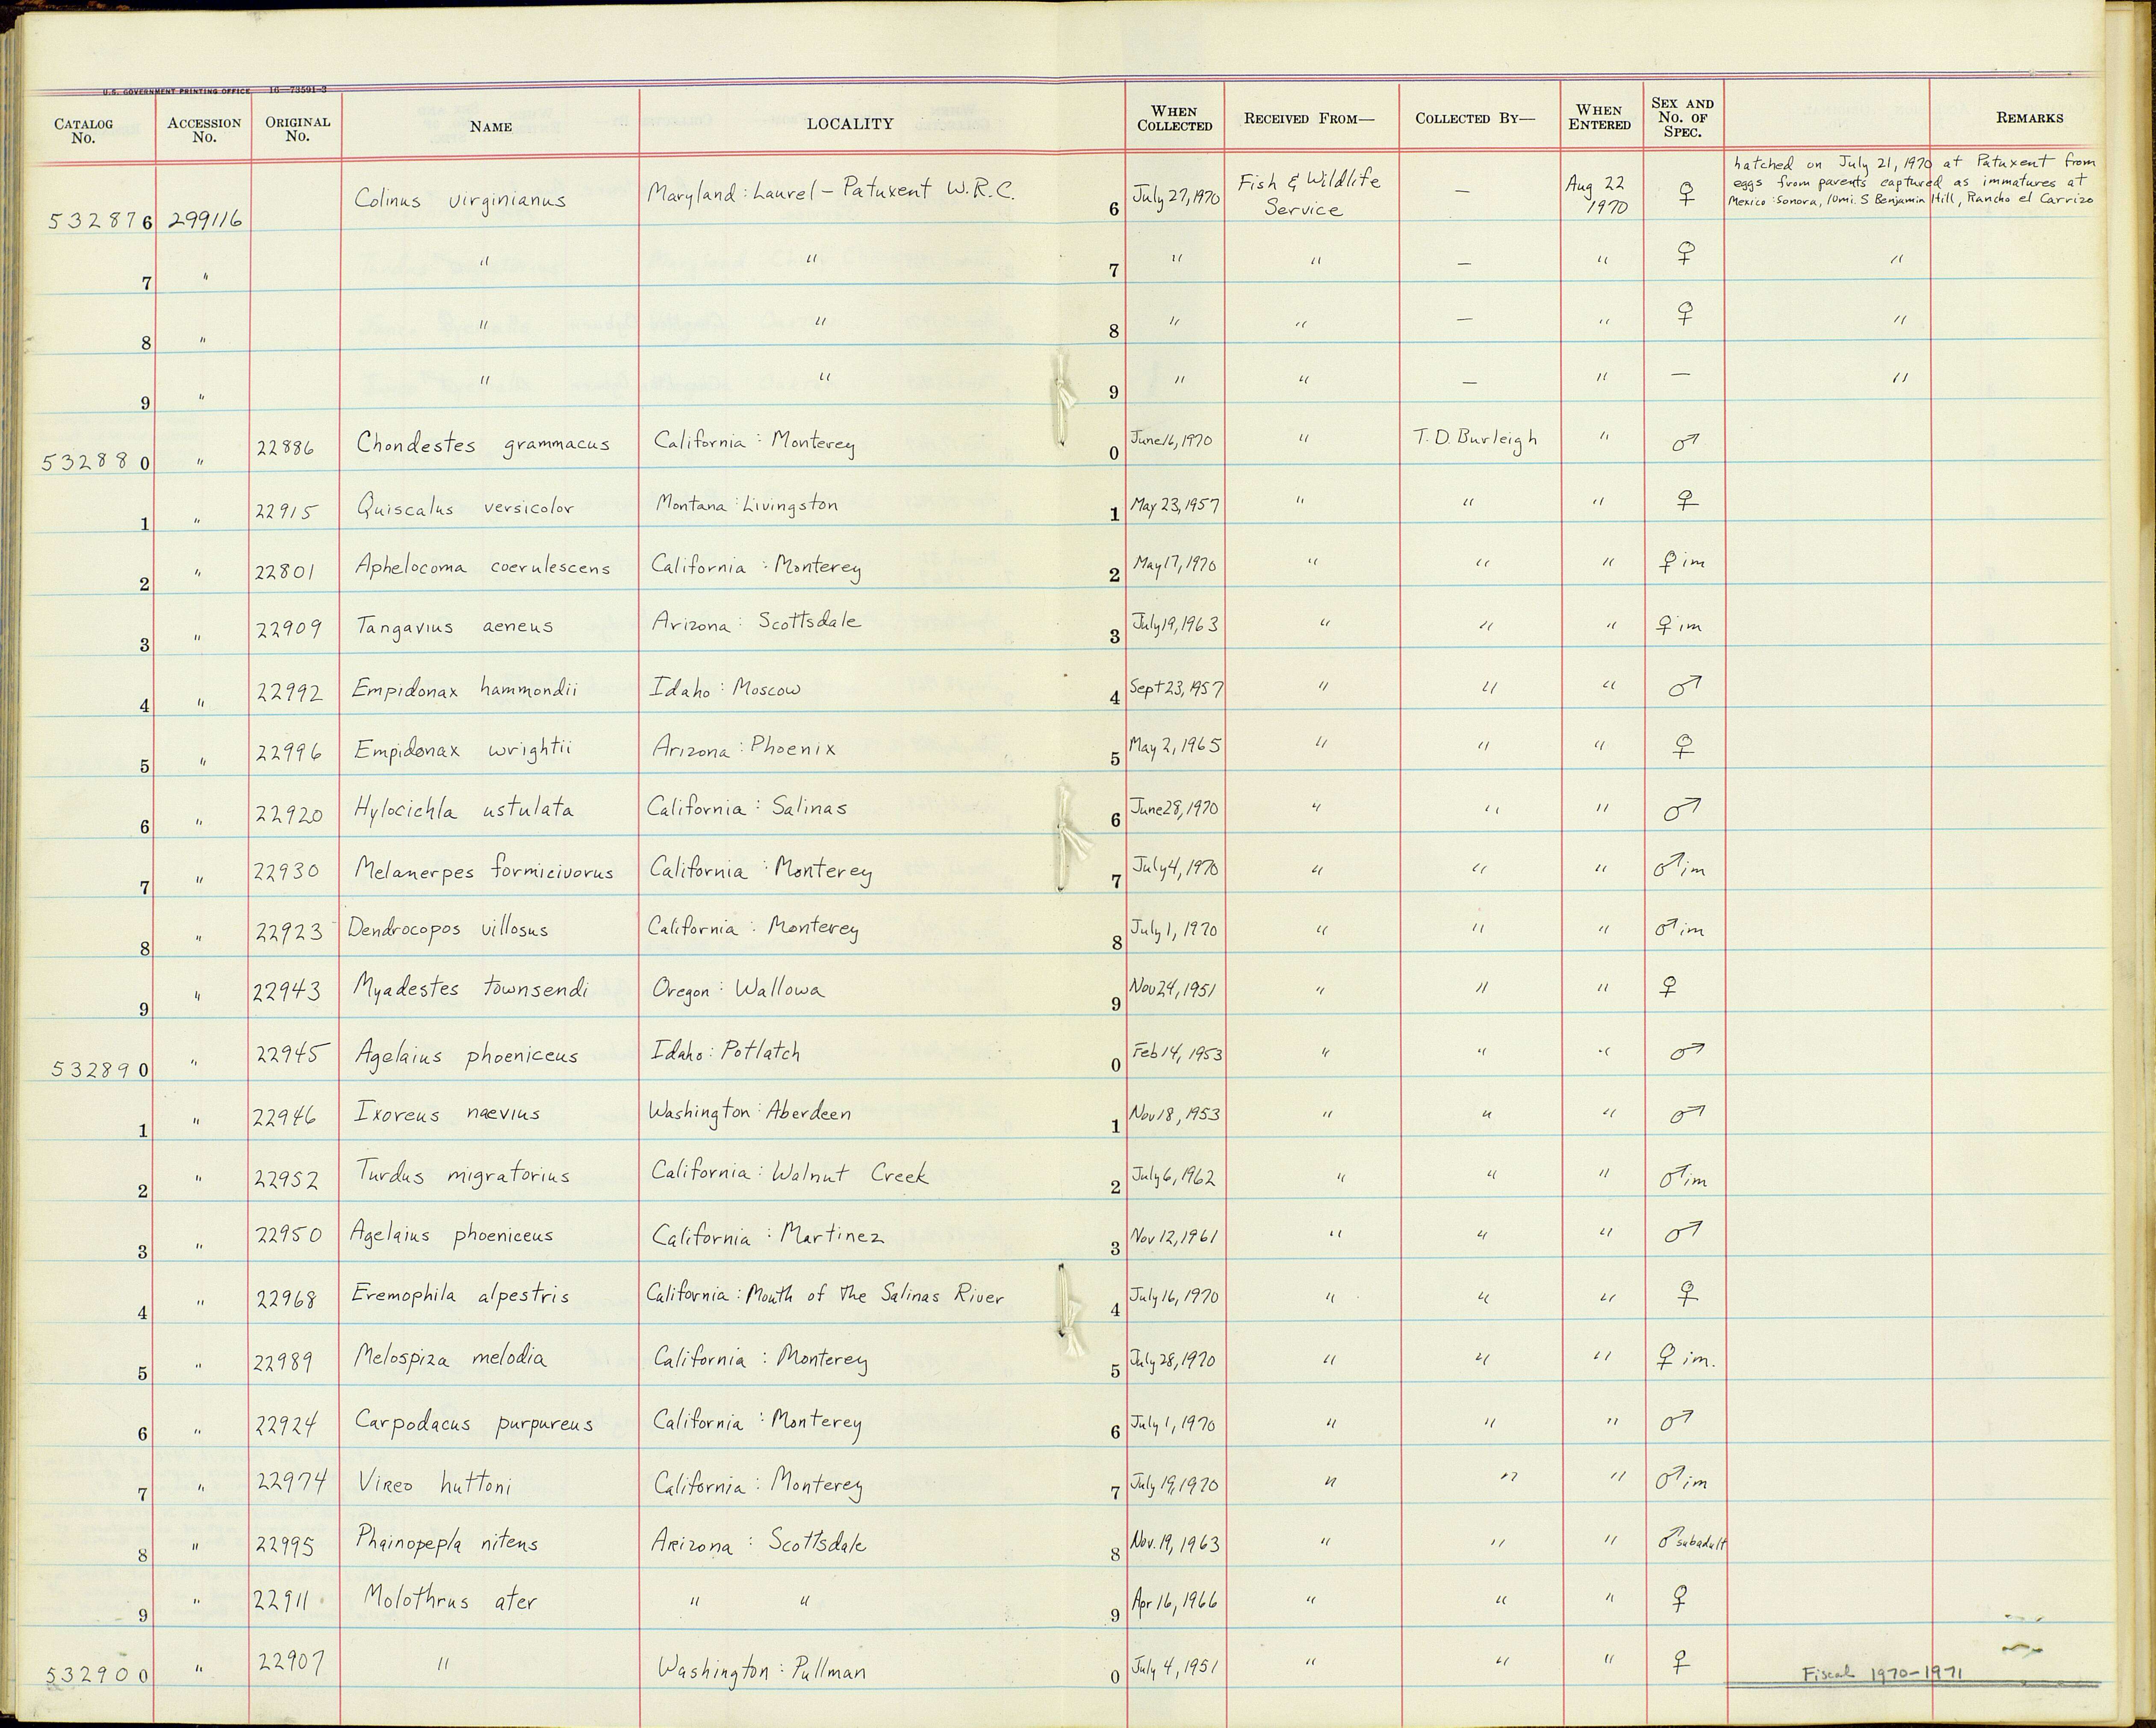 U.S. GOVERNMENT PRINTING OFFICE 16—73591-3
CATALOG No. ACCESSION No. ORIGINAL No. NAME LOCALITY WHEN COLLECTED RECEIVED FROM— COLLECTED BY— WHEN ENTERED SEX AND No. OF SPEC. REMARKS
532876 299116 Colinus virginianus Maryland: Laurel - Patuxent W.R.C. 6 July 27, 1970 Fish & Wildlife Service — Aug 22 1970 ♀ hatched on July 21, 1970 at Patuxent from
eggs from parents captured as immatures at
Mexico: Sonora, 10mi. S Benjamin Hill, Rancho el Carrizo
7 " " " 7 " " — " ♀ "
8 " " " 8 " " — " ♀ "
9 " " " 9 " " — " — "
532880 " 22886 Chondestes grammacus California: Monterey 0 June 16, 1970 " T.D. Burleigh " ♂
1 " 22915 Quiscalus versicolor Montana: Livingston 1 May 23, 1957 " " " ♀
2 " 22801 Aphelocoma coerulescens California: Monterey 2 May 17, 1970 " " " ♀ im
3 " 22909 Tangavius aeneus Arizona: Scottsdale 3 July 19, 1963 " " " ♀ im
4 " 22992 Empidonax hammondii Idaho: Moscow 4 Sept 23, 1957 " " " ♂
5 " 22996 Empidonax wrightii Arizona: Phoenix 5 May 2, 1965 " " " ♀
6 " 22920 Hylocichla ustulata California: Salinas 6 June 28, 1970 " " " ♂
7 " 22930 Melanerpes formicivorus California: Monterey 7 July 4, 1970 " " " ♂ im
8 " 22923 Dendrocopos villosus California: Monterey 8 July 1, 1970 " " " ♂ im
9 " 22943 Myadestes townsendi Oregon: Wallowa 9 Nov 24, 1951 " " " ♀
532890 " 22945 Agelaius phoeniceus Idaho: Potlatch 0 Feb 14, 1953 " " " ♂
1 " 22946 Ixoreus naevius Washington: Aberdeen 1 Nov 18, 1953 " " " ♂
2 " 22952 Turdus migratorius California: Walnut Creek 2 July 6, 1962 " " " ♂ im
3 " 22950 Agelaius phoeniceus California: Martinez 3 Nov 12, 1961 " " " ♂
4 " 22968 Eremophila alpestris California: Mouth of the Salinas River 4 July 16, 1970 " " " ♀
5 " 22989 Melospiza melodia California: Monterey 5 July 28, 1970 " " " ♀ im.
6 " 22924 Carpodacus purpureus California: Monterey 6 July 1, 1970 " " " ♂
7 " 22974 Vireo huttoni California: Monterey 7 July 19, 1970 " " " ♂ im
8 " 22995 Phainopepla nitens Arizona: Scottsdale 8 Nov. 19, 1963 " " " ♂ subadult
9 " 22911 Molothrus ater " " 9 Apr 16, 1966 " " " ♀
532900 " 22907 " Washington: Pullman 0 July 4, 1951 " " " ♀ Fiscal 1970-1971